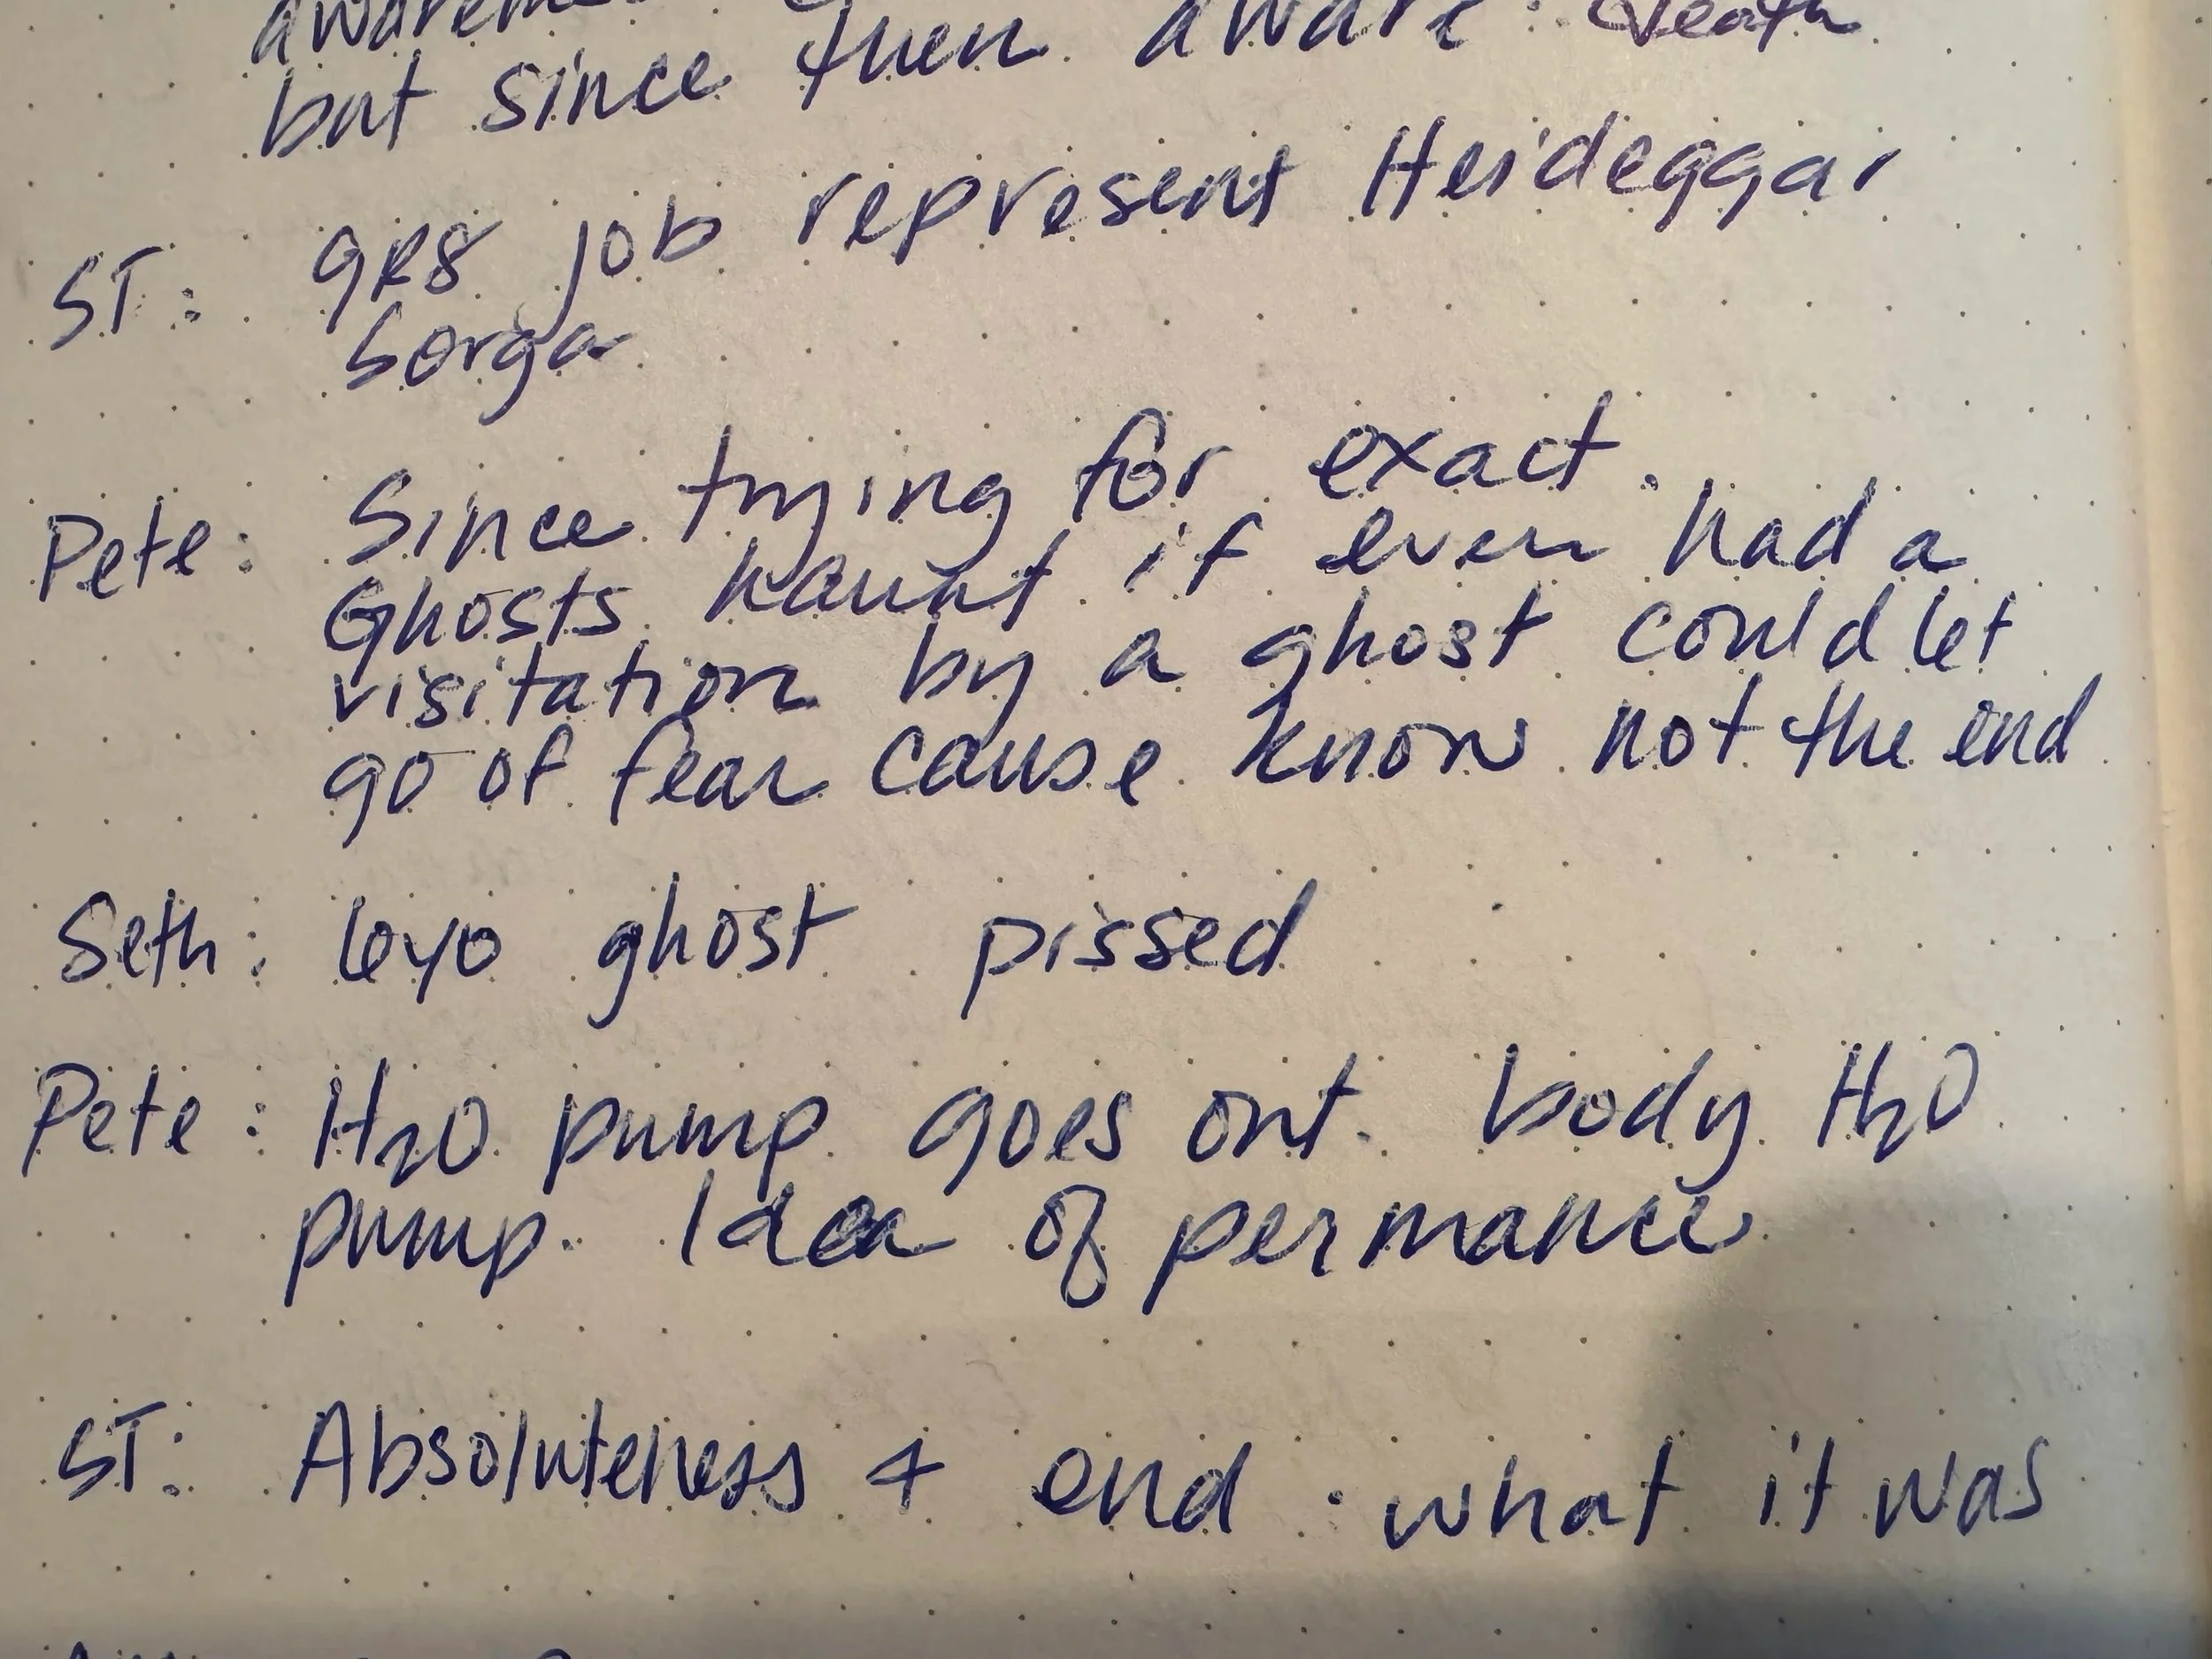 but since then aware : death
ST: gr8 job represent Heideggar
Sorga
Pete: Since trying for exact.
Ghosts haunt if even had a
visitation by a ghost could let
go of fear cause know not the end
Seth: 6yo ghost pissed
Pete: H2O pump goes out. body H2O
pump. Idea of permance
ST: Absoluteness + end . what it was